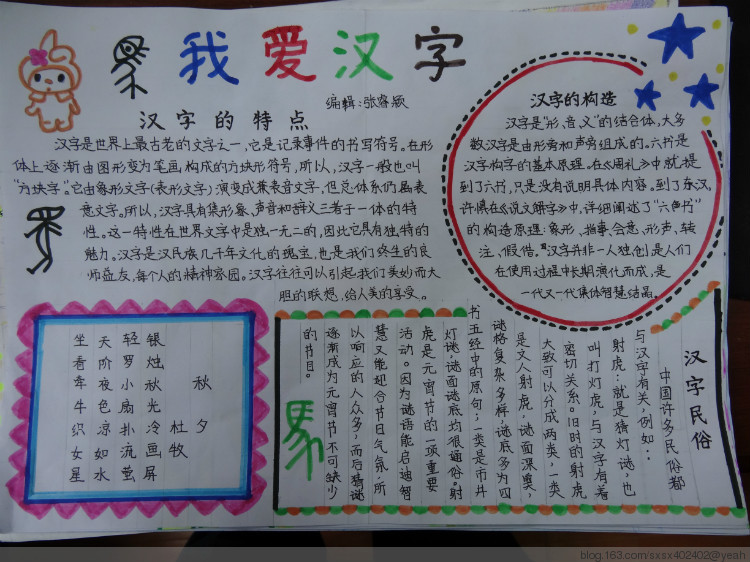 我爱汉字
编辑:张睿颖
汉字的特点
汉字是世界上最古老的文字之一,它是记录事件的书写符号。在形
体上逐渐由图形变为笔画,构成的方块形符号,所以,汉字一般也叫
"方块字"。它由象形文字(表形文字)演变成兼表音文字,但总体系仍属表
意文字。所以,汉字具有集形象、声音和辞义三者于一体的特
性。这一特性在世界文字中是独一无二的,因此它具有独特的
魅力。汉字是汉民族几千年文化的瑰宝,也是我们终生的良
师益友,每个人的精神家园。汉字往往可以引起我们美妙而大
胆的联想,给人美的享受。
汉字的构造
汉字是"形、音、义"的结合体,大多
数汉字是由形旁和声旁组成的。六书是
汉字构字的基本原理。在《周礼》中就提
到了六书,只是没有说明具体内容。到了东汉,
许慎在《说文解字》中,详细阐述了"六书"
的构造原理:象形、指事、会意、形声、转
注、假借。汉字并非一人独创,是人们
在使用过程中长期演化而成,是
一代又一代集体智慧结晶。
秋夕
杜牧
银烛秋光冷画屏
轻罗小扇扑流萤
天阶夜色凉如水
坐看牵牛织女星
汉字民俗
中国许多民俗都
与汉字有关,例如:
射虎:就是猜灯谜,也
叫打灯虎,与汉字有着
密切关系。旧时的射虎
大致可以分成两类,一类
是文人射虎,谜面深奥,
谜格复杂多样,谜底多为四
书五经中的原句;一类是市井
灯谜,谜面谜底均很通俗。射
虎是元宵节的一项重要
活动。因为谜语能启迪智
慧又能迎合节日气氛,所
以响应的人众多,而后猜谜
逐渐成为元宵节不可缺少
的节目。
blog.163.com/sxsx402402@yeah